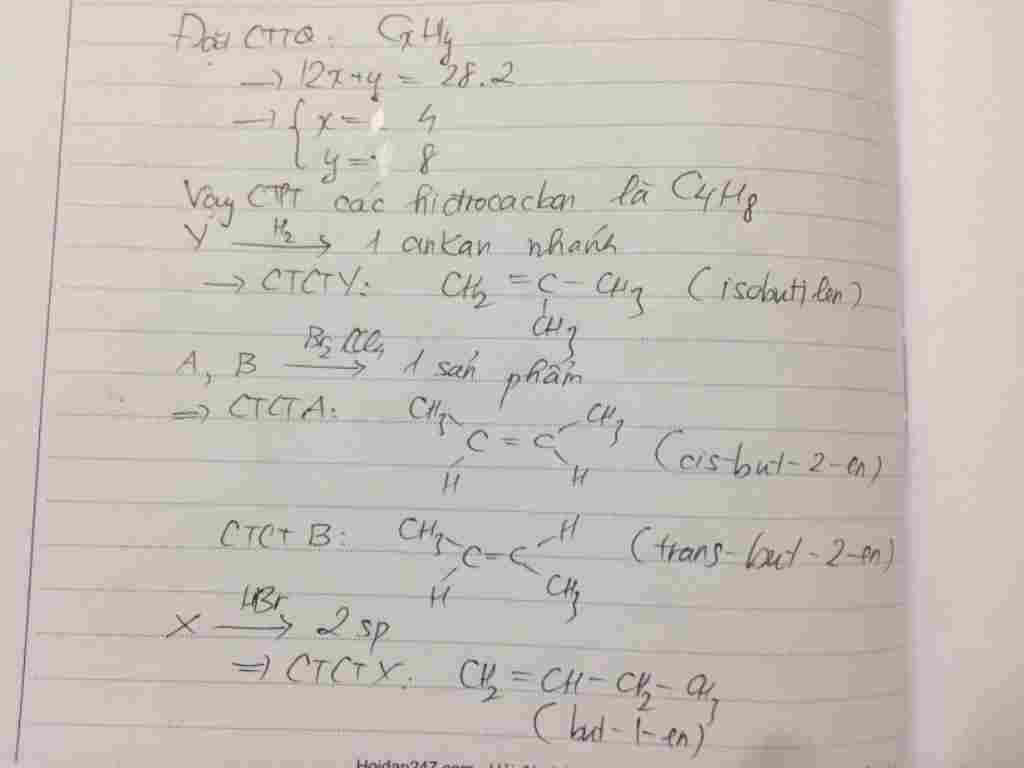 Đặt CTTQ: CxHy
→ 12x+y = 28.2
→ { x = 4
y = 8
Vậy CTPT các hidrocacbon là C4H8
Y H2→ 1 ankan nhánh
→ CTCTY: CH2 = C - CH3 (isobutilen)
CH3
A, B Br2 CCl4→ 1 sản phẩm
=> CTCTA: CH3 CH3
C = C (cis-but-2-en)
H H
CTCT B: CH3 H
C = C (trans-but-2-en)
H CH3
X HBr→ 2 sp
=> CTCTX: CH2 = CH - CH2 - CH3
(but-1-en)
Hoidan247.com